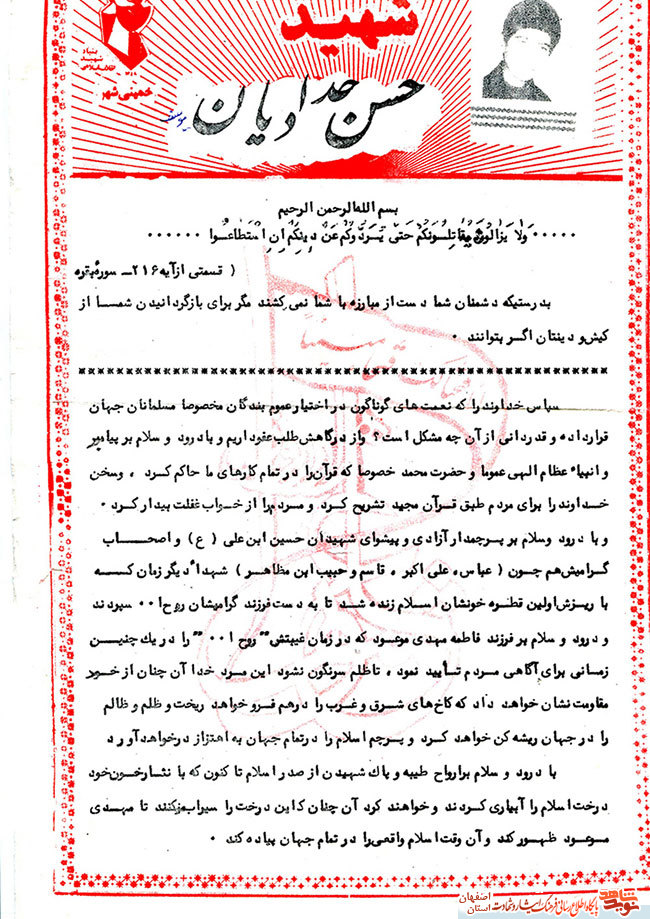 شهید
بنیاد
شهید
انقلاب اسلامی
خمینی شهر
حسن حدادیان
بسم الله الرحمن الرحیم
..... وَلا یَزالُونَ یُقاتِلُونَکُم حَتّی یَرُدُّوکُم عَن دینِکُم اِنِ اسْتَطاعُوا ......
( قسمتی از آیه ۲۱۶ـ سوره بقره
بدرستیکه دشمنان شما دست از مبارزه با شما نمی کشند مگر برای بازگردانیدن شما از
کیش و دینتان اگر بتوانند .
سپاس خداوند را که نعمت های گوناگون در اختیار عموم بندگان مخصوصا مسلمانان جهان
قرار داده و قدردانی از آن چه مشکل است ؟ و از درگاهش طلب عفو داریم و با درود و سلام بر پیامبر
و انبیاء عظام الهی عموما و حضرت محمد خصوصا که قرآن را در تمام کارهای ما حاکم کرد ، و سخن
خداوند را برای مردم طبق قرآن مجید تشریح کرد و مردم را از خواب غفلت بیدار کرد .
و با درود وسلام بر پرچمدار آزادی و پیشوای شهیدان حسین ابن علی ( ع ) و اصحاب
گرامیش هم چون ( عباس ، علی اکبر ، قاسم و حبیب ابن مظاهر ) شهداء دیگر زمان که
با ریزش اولین قطره خونشان اسلام زنده شد تا به دست فرزند گرامیشان روح ا۰۰ سپردند
و درود و سلام بر فرزند فاطمه مهدی موعود که در زمان غیبتش "روح ا۰۰" را در یک چنین
زمانی برای آگاهی مردم تأیید نمود ، تا ظلم سرنگون شود این مرد خدا آن چنان از خود
مقاومت نشان خواهد داد که کاخ های شرق و غرب را درهم فرو خواهد ریخت و ظلم و ظالم
را در جهان ریشه کن خواهد کرد و پرچم اسلام را در تمام جهان به اهتزاز در خواهد آورد
با درود و سلام بر ارواح طیبه و پاک شهیدن از صدر اسلام تا کنون که با نثار خون خود
درخت اسلام را آبیاری کردند و خواهند کرد آن چنان که این درخت را سیراب میکنند تا مهدی
موعود ظهور کند و آن وقت اسلام واقعی را در تمام جهان پیاده کند .
نوید شاهد
پایگاه اطلاع رسانی فرهنگ ایثار و شهادت استان اصفهان